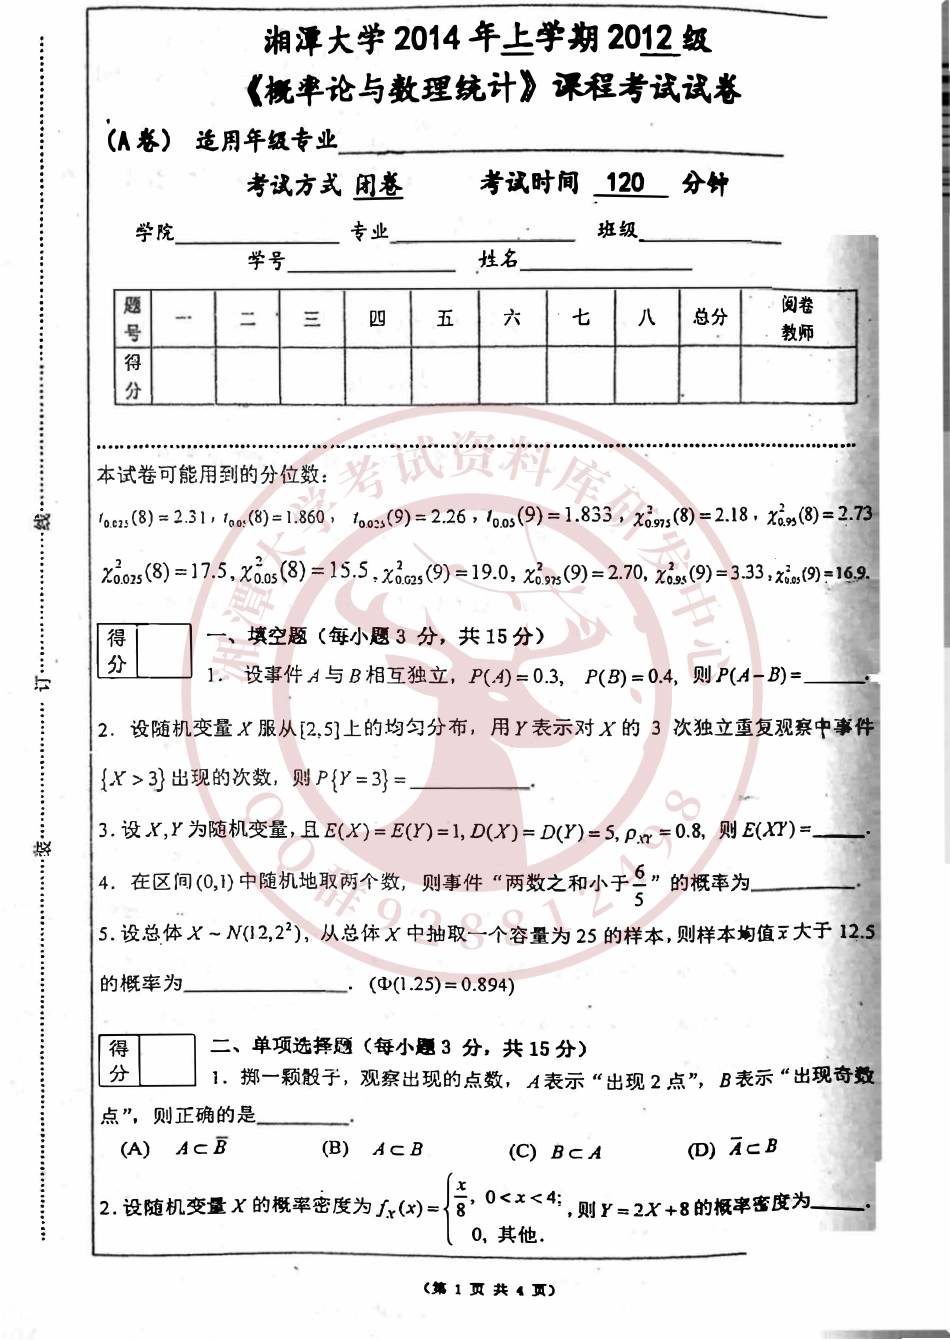 湘潭大学 2014 年上学期 2012 级
《概率论与数理统计》课程考试试卷
(A 卷) 适用年级专业
考试方式 闭卷 考试时间 120 分钟
学院 专业 班级
学号 姓名
题号 一 二 三 四 五 六 七 八 总分 阅卷教师
得分
本试卷可能用到的分位数:
t₀.₀₂₅(8) = 2.31, t₀.₀₅(8) = 1.860, t₀.₀₂₅(9) = 2.26, t₀.₀₅(9) = 1.833, χ²₀.₉₇₅(8) = 2.18, χ²₀.₉₅(8) = 2.73
χ²₀.₀₂₅(8) = 17.5, χ²₀.₀₅(8) = 15.5, χ²₀.₀₂₅(9) = 19.0, χ²₀.₉₇₅(9) = 2.70, χ²₀.₉₅(9) = 3.33, χ²₀.₀₅(9) = 16.9.
得分
一、填空题(每小题 3 分, 共 15 分)
1. 设事件 A 与 B 相互独立, P(A) = 0.3, P(B) = 0.4, 则 P(A−B) = ______.
2. 设随机变量 X 服从[2,5]上的均匀分布, 用 Y 表示对 X 的 3 次独立重复观察中事件
{X > 3} 出现的次数, 则 P{Y = 3} = ______.
3. 设 X,Y 为随机变量, 且 E(X) = E(Y) = 1, D(X) = D(Y) = 5, ρ_XY = 0.8, 则 E(XY) = ______.
4. 在区间(0,1)中随机地取两个数, 则事件“两数之和小于 6/5”的概率为______.
5. 设总体 X ~ N(12,2²), 从总体 X 中抽取一个容量为 25 的样本, 则样本均值 x̄ 大于 12.5
的概率为______. (Φ(1.25) = 0.894)
得分
二、单项选择题(每小题 3 分, 共 15 分)
1. 掷一颗骰子, 观察出现的点数, A 表示“出现 2 点”, B 表示“出现奇数
点”, 则正确的是______.
(A) A ⊂ B̄ (B) A ⊂ B (C) B ⊂ A (D) Ā ⊂ B
2. 设随机变量 X 的概率密度为 f_X(x) = { x/8, 0 < x < 4; 0, 其他. , 则 Y = 2X + 8 的概率密度为______.
(第 1 页 共 4 页)
装 订 线
湘潭大学考试资料库研发中心
QQ群928812498